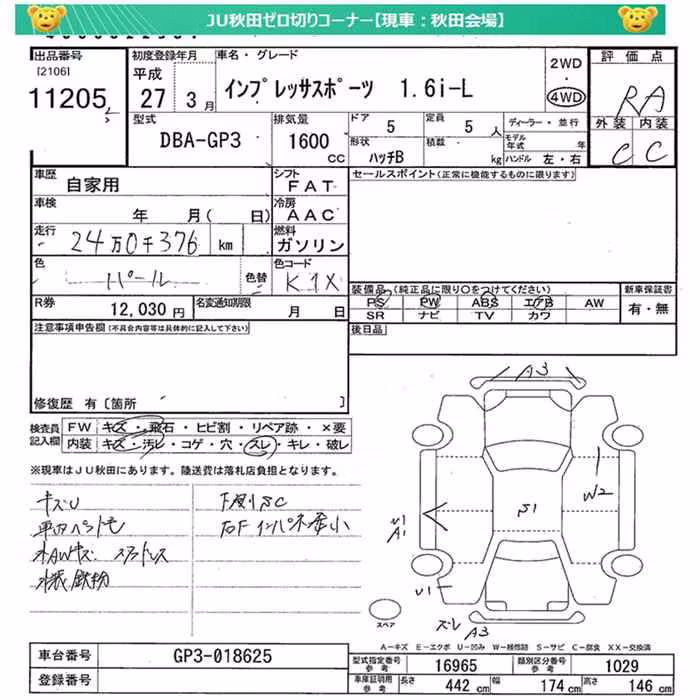 JU秋田ゼロ切りコーナー【現車：秋田会場】
出品番号 初度登録年月 車名・グレード 2WD 評価点
[2106] 平成 ・
11205 27年 3月 インプレッサスポーツ 1.6i-L 4WD RA
型式 排気量 ドア 5 定員 5人 ディーラー・並行 外装 内装
DBA-GP3 1600cc 形状 ハッチB 積載 kg モデル年式 年 ハンドル 左・右 C C
車歴 自家用 シフト FAT セールスポイント(正常に機能するものに限ります)
車検 年 月( 日) 冷房 AAC
走行 24万0千376 km 燃料 ガソリン
色 パール 色替 色コード K1X
装備品(純正品に限り○をつけてください) 新車保証書
PS PW ABS エアB AW 有・無
SR ナビ TV カワ
R券 12,030円 名変通知期限 月 日
後日品
注意事項申告欄(不具合内容等は具体的に記入して下さい)
修復歴 有[箇所 ]
検査員記入欄 FW キズ・飛石・ヒビ割・リペア跡・×要
内装 キズ・汚レ・コゲ・穴・スレ・キレ・破レ
※現車はJU秋田にあります。陸送費は落札店負担となります。
キズU 下廻りSC
鉄粉
A3
W2
S1
U1
A1
U1
スレ
A3
スペア
A-キズ E-エクボ U-凹み W-補修跡 S-サビ C-腐食 XX-交換済
車台番号 GP3-018625
登録番号
型式指定番号 参考 16965 類別区分番号 参考 1029
車庫証明用 参考 長さ 442cm 幅 174cm 高さ 146cm